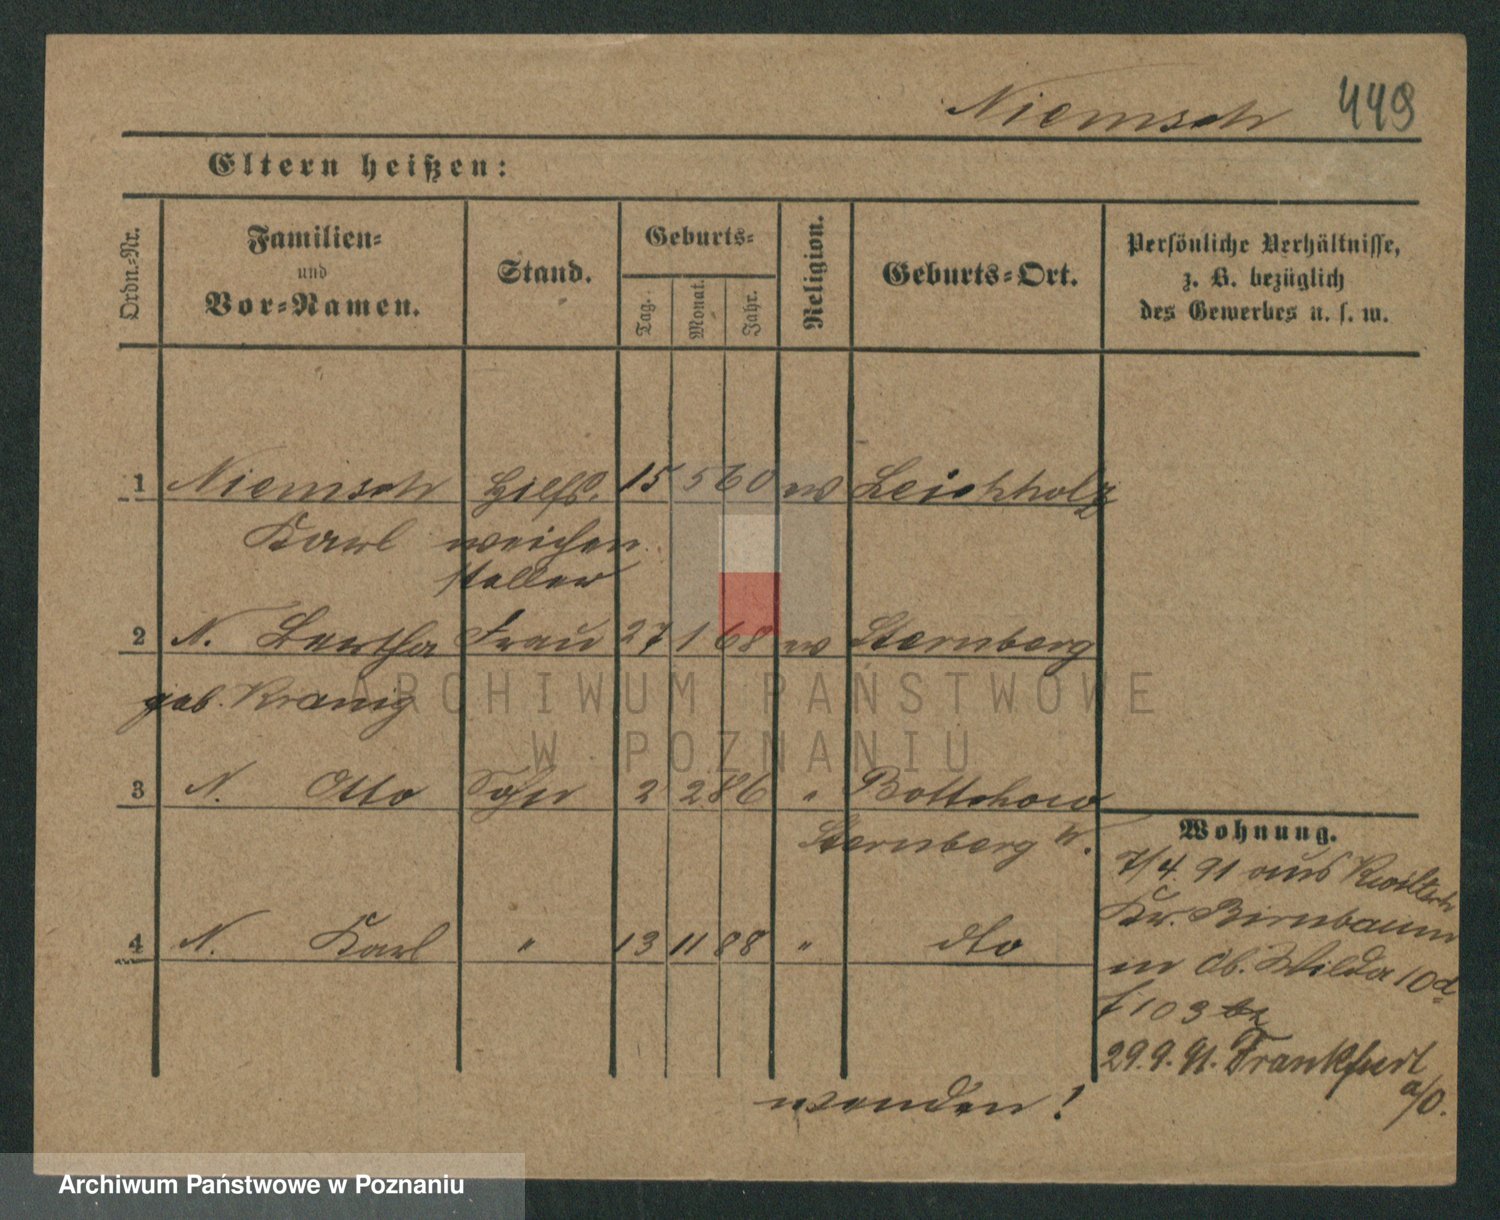 Niemsch 449
Eltern heißen:
Ordn.-Nr.
Familien-
und
Vor-Namen.
Stand.
Geburts-
Tag.
Monat.
Jahr.
Religion.
Geburts-Ort.
Persönliche Verhältnisse,
z. B. bezüglich
des Gewerbes u. s. w.
1 Niemsch Hilfs. 15 5 60 ev Leichholz
Karl weichen
steller
2 N. Bertha Frau 27 1 68 ev Sternberg
geb. Kranig
ARCHIWUM PAŃSTWOWE
W POZNANIU
3 N. Otto Sohn 2 2 86 " Bottschow
Sternberg
4 N. Karl " 13 11 88 " dto
Wohnung.
7/4. 91 aus Kwiltsch
Kr. Birnbaum
in Ob. Wilda 10d
f 103
29.9.91. Frankfurt
a/O.
wenden!
Archiwum Państwowe w Poznaniu